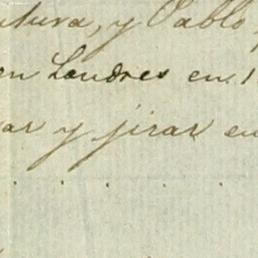 tura, y Pablo
en Londres en 1
ar y jirar en
. . . . .